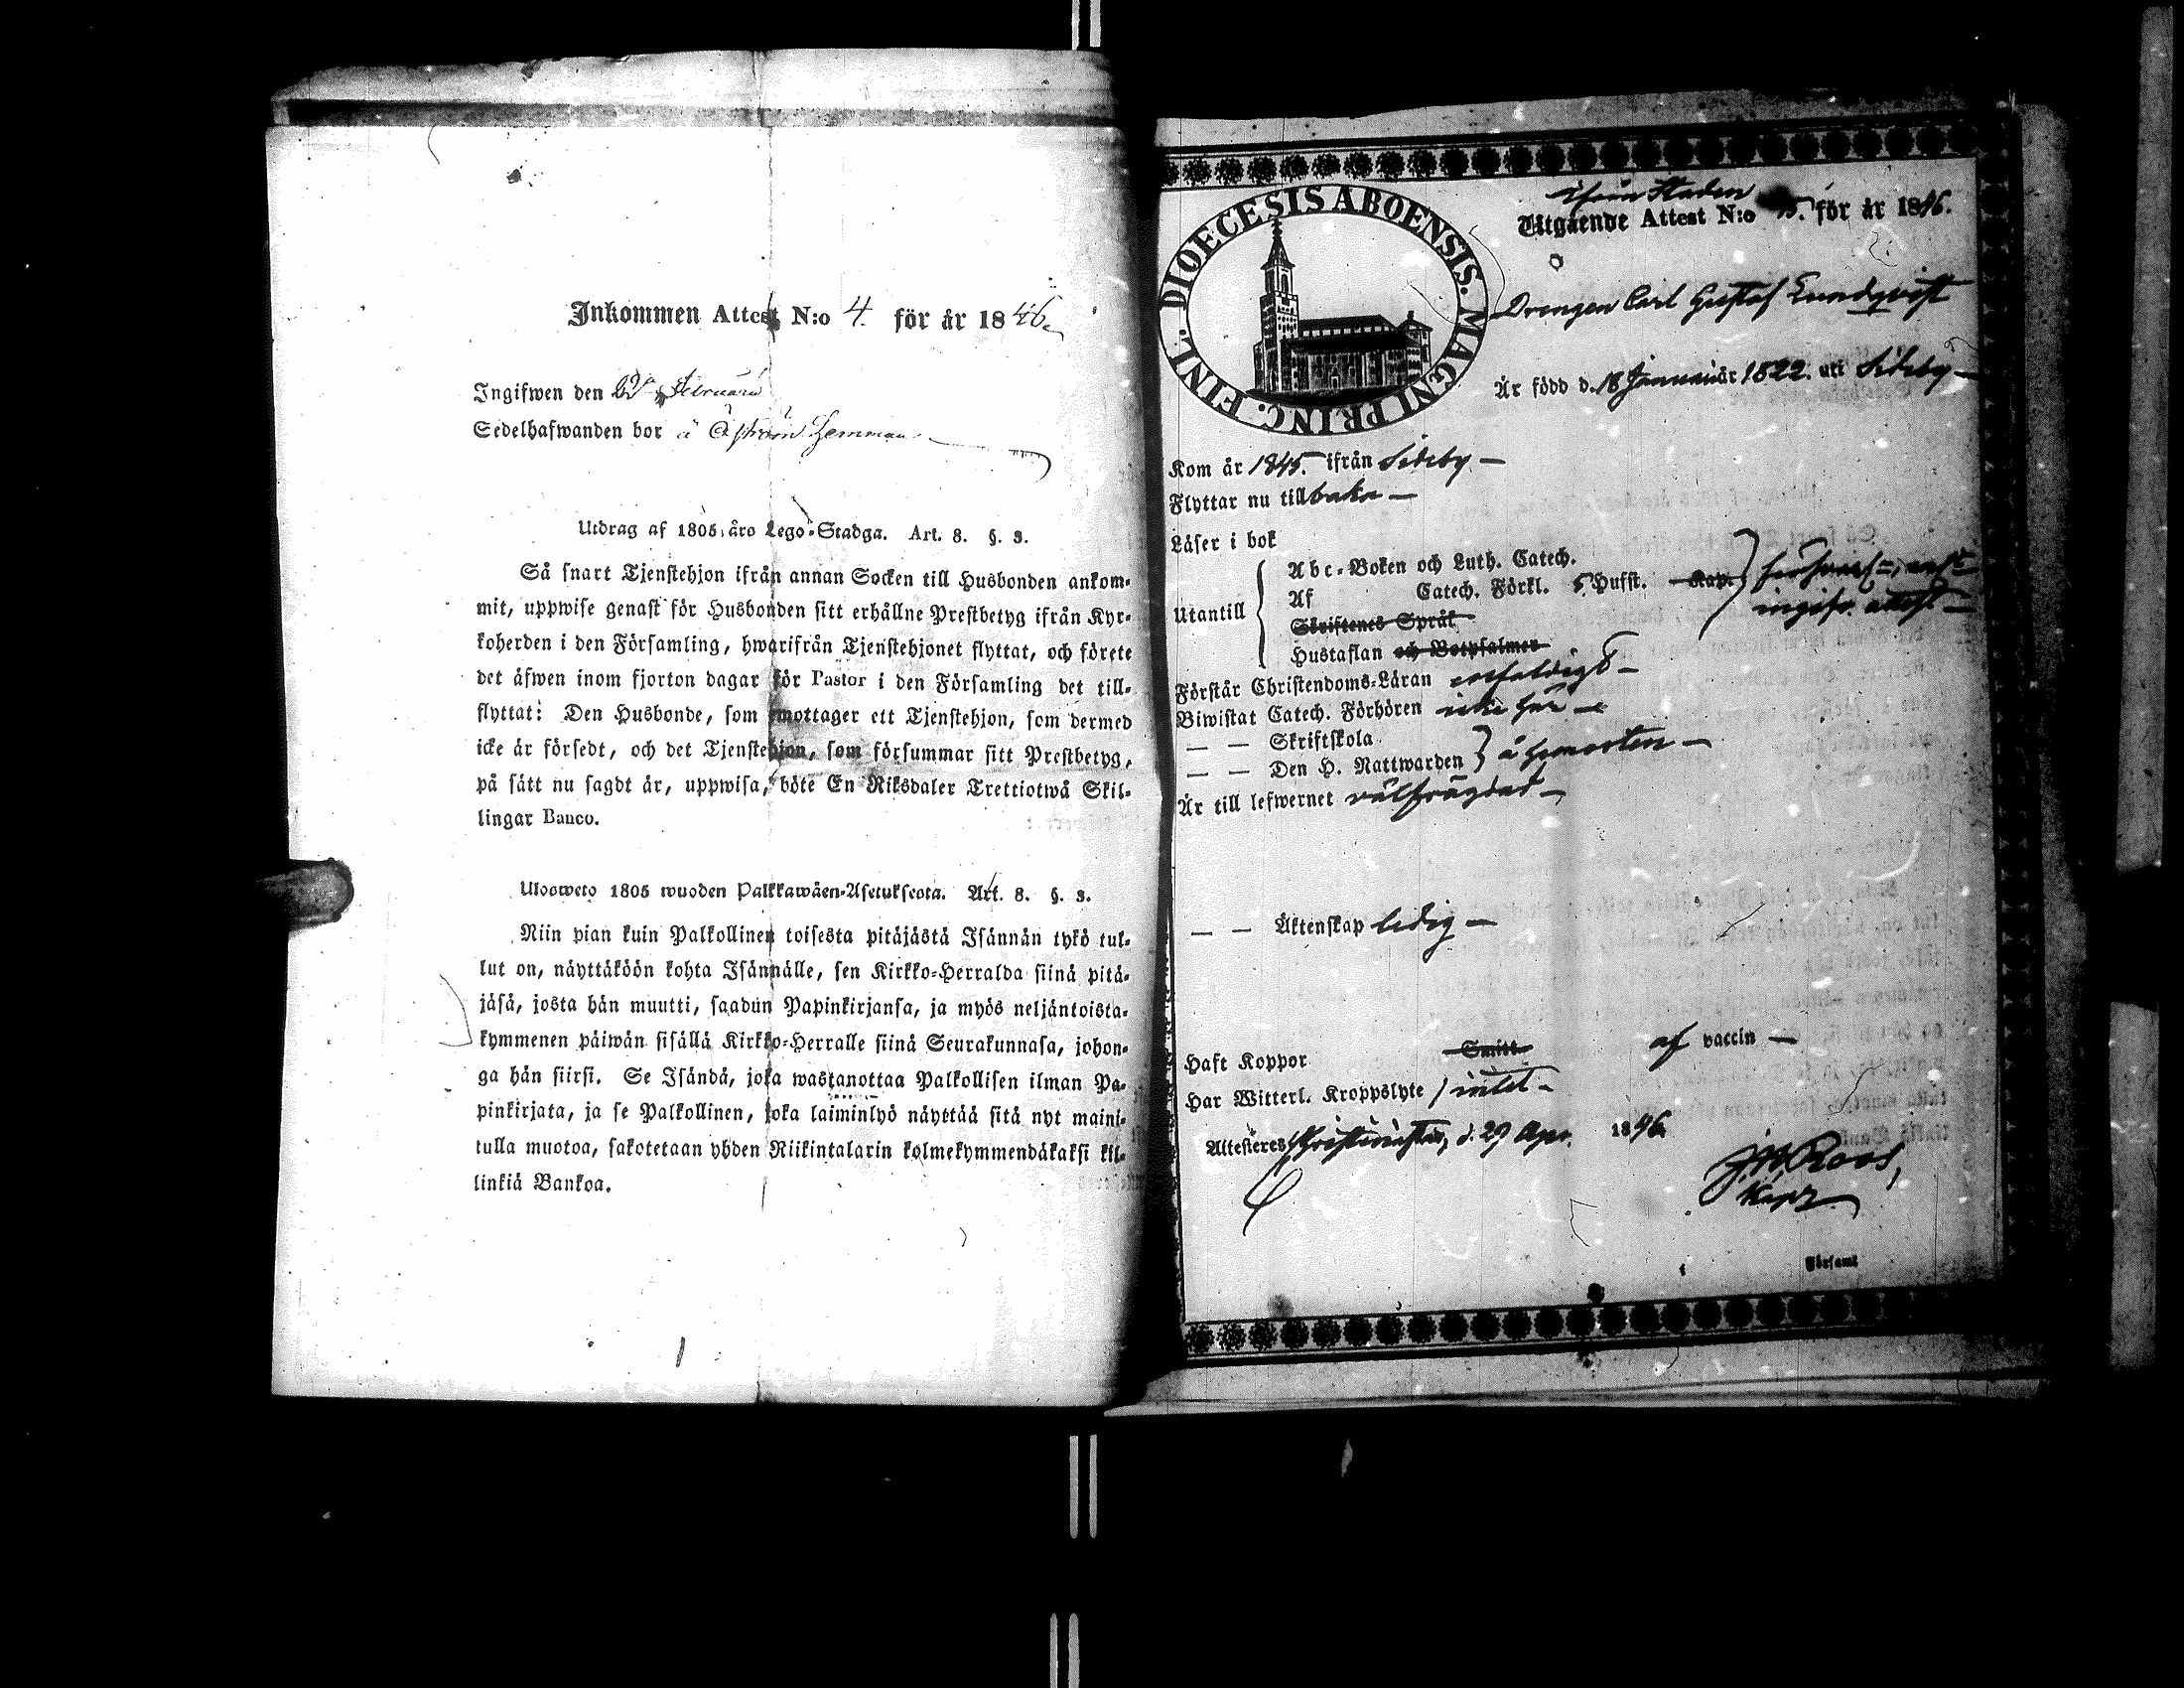 Inkommen Attest N:o 4. för år 1846.
Ingifwen den Februarii
Sedelhafwanden bor å Åström hemman
Utdrag af 1805 års Lego-Stadga. Art. 8. §. 3.
Så snart Tjenstehjon ifrån annan Socken till Husbonden ankom-
mit, uppwise genast för Husbonden sitt erhållne Prestbetyg ifrån Kyr-
koherden i den Församling, hwarifrån Tjenstehjonet flyttat, och förete
det äfwen inom fjorton dagar för Pastor i den Församling det till-
flyttat: Den Husbonde, som emottager ett Tjenstehjon, som dermed
icke är försedt, och det Tjenstehjon, som försummar sitt Prestbetyg,
på sätt nu sagdt är, uppwisa, böte En Riksdaler Trettiotwå Skil-
lingar Banco.
Ulosweto 1805 wuoden Palkkawäen-Asetuksesta. Art. 8. §. 3.
Niin pian kuin Palkollinen toisesta pitäjästä Isännän tykö tul-
lut on, näyttäköön kohta Isännälle, sen Kirkko-Herralda siinä pitä-
jäsä, josta hän muutti, saadun Papinkirjansa, ja myös neljäntoista-
kymmenen päiwän sisällä Kirkko-Herralle siinä Seurakunnasa, johon-
ga hän siirsi. Se Isändä, joka wastanottaa Palkollisen ilman Pa-
pinkirjata, ja se Palkollinen, joka laiminlyö näyttää sitä nyt maini-
tulla muotoa, sakotetaan yhden Riikintalarin kolmekymmendäkaksi kil-
linkiä Bankoa.
DIOECESIS ABOENSIS. MAGNI PRINC. FINL.
ifrån Staden
Utgående Attest N:o 15. för år 1846.
Drengen Carl Gustaf Lundqvist
Är född d. 18 Januari år 1822. uti Sideby
Kom år 1845. ifrån Sideby
Flyttar nu tillbaka
Läser i bok
Utantill
Abc-Boken och Luth. Catech.
Af Catech. Förkl. 5 Hufst. Kap.
ingifv. attest
Skriftenes Språk
Hustaflan och Botpsalmen
Förstår Christendoms-Läran enfaldigt
Biwistat Catech. Förhören icke här
— — Skriftskola
— — Den H. Nattwarden } å hemorten
Är till lefwernet välfrägdad
— — Äktenskap ledig
Haft Koppor Smitt af vaccin
Har Witterl. Kroppslyte intet
Attesteres Christinestad, d. 29 Apr. 1846.
Roos,
Kapl.
Församl